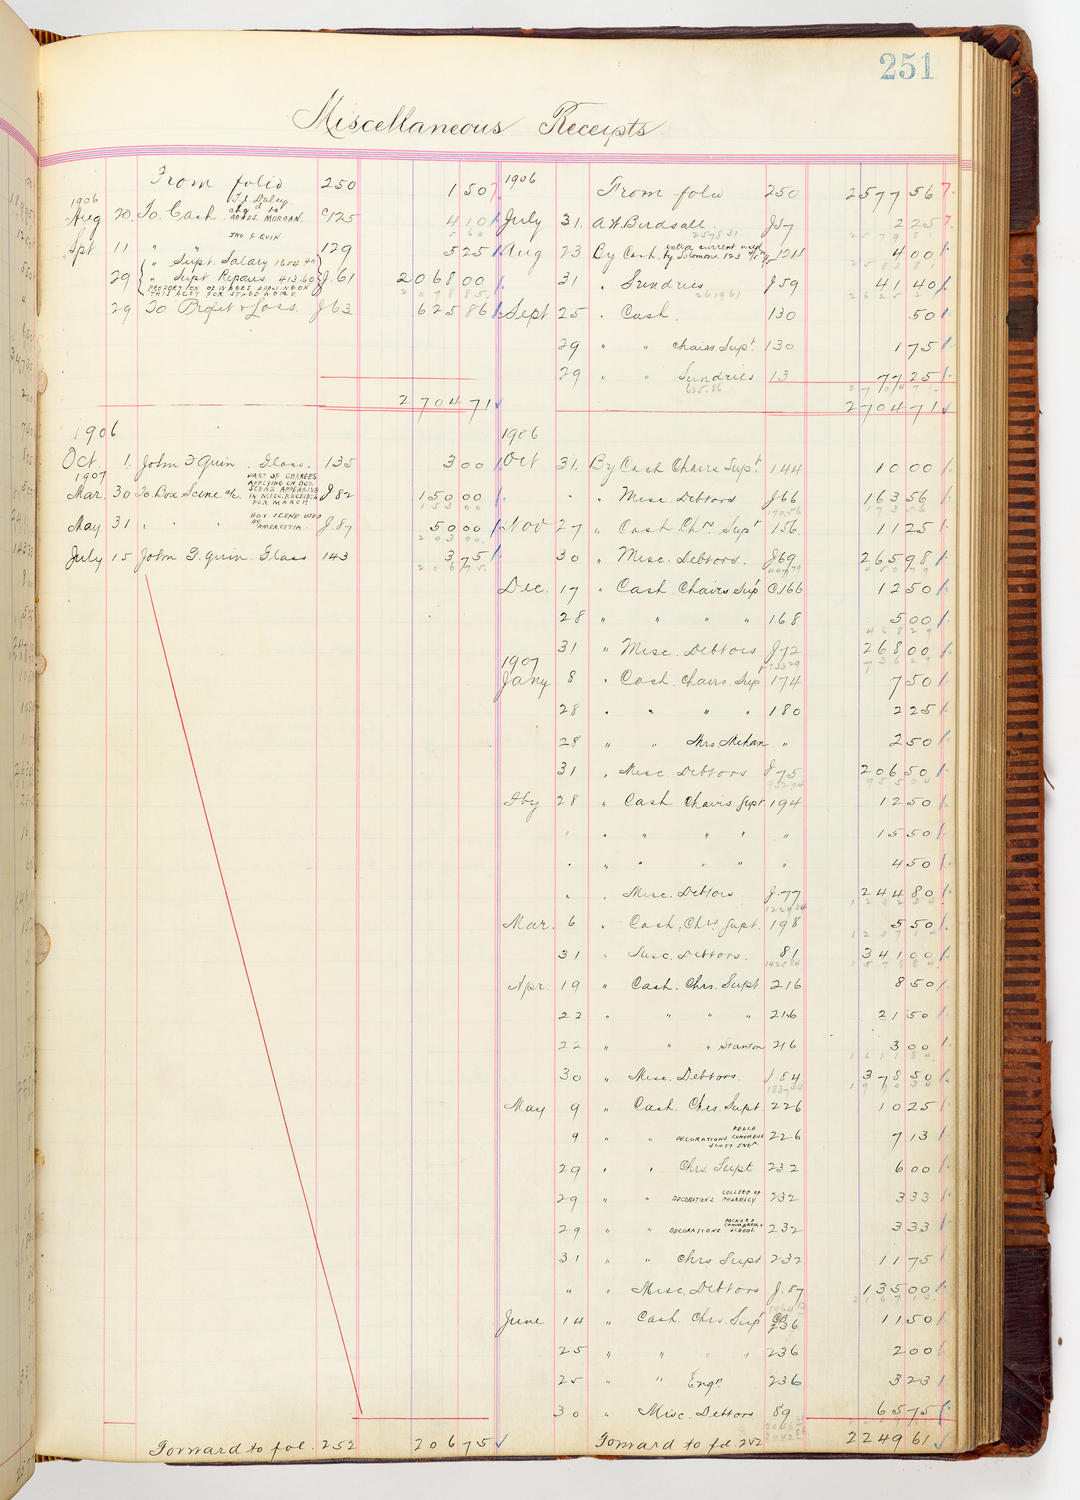 251
Miscellaneous Receipts
From folio 250 1 50
1906 T. L. Daley
Aug 20 To Cash chg'd to ROADS. MORGAN. C125 4 10
JNO F QUIN
Spt 11 " " 129 5 25
" Supt. Salary 1654.40
29 " Supt Repairs 413.60 J.61 2068 00
PROPORTION OF WAGES APPLYING ON
THIS ACCT FOR STAGE WORK
29 To Profit & Loss. J63 625 86
2704 71
1906
Oct. 1. John F Quin. Glass. 135 3 00
1907 PART OF CHARGES
APPLYING ON BOX
SCENE APPEARING
Mar. 30 To Box Scene a/c IN MISC. RECEIPTS J.82 150 00
FOR MARCH
BOX SCENE USED
May 31 " " BY AMERCITIA J.87 50 00
July 15 John F. Quin. Glass 143 3 75
Forward to fol. 252 206 75
1906
From folio 250 2577 56
July 31. A. W. Birdsall J57 2 25
Aug 23 By Cash, extra current used by Solomon 123 124 4 00
31 " Sundries J59 41 40
Sept 25 " Cash 130 .50
29 " " Chairs Supt. 130 1 75
29 " " Sundries 13 77 25
625.86
2704 71
1906
Oct 31. By Cash Chairs Supt 144 10 00
" " Misc. Debtors J66 163 56
Nov 27 " Cash Chrs Supt 156. 11 25
30 " Misc. Debtors. J69 265 98
Dec. 17 " Cash Chairs Supt C166 12 50
28 " " " " 168 5 00
31 " Misc. Debtors J72 268 00
1907
Jany 8 " Cash Chairs Supt 174 7 50
28 " " " " 180 2 25
28 " " Mrs Mehan " 2 50
31 " Misc. Debtors J75 206 50
Fby 28 " Cash Chairs Supt 194 12 50
" " " " " " 15 50
" " " " " " 4 50
" " Misc. Debtors J.77 244 80
Mar. 6 " Cash, Chrs. Supt. 198 5 50
31 " Misc. Debtors. 81 341 00
Apr. 19 " Cash. Chrs. Supt 216 8 50
22 " " " " 216 21 50
22 " " " Stanton 216 3 00
30 " Misc. Debtors. J84 378 50
May 9 " Cash. Chrs. Supt 226 10 25
9 " " DECORATIONS PEACE CONGRESS SCOTT ENGR 226 7 13
29 " " Chrs. Supt 232 6 00
29 " " DECORATIONS COLLEGE OF PHARMACY 232 3 33
29 " " DECORATIONS PACKARD COMMERCIAL SCHOOL 232 3 33
31 " " Chrs Supt 232 11 75
" " Misc. Debtors J.87 135 00
June 14 " Cash. Chrs. Supt CB 236 11 50
25 " " " " 236 2 00
25 " " Engr. 236 3 23
30 " Misc. Debtors 89 65 75
Forward to fol. 252 2249 61